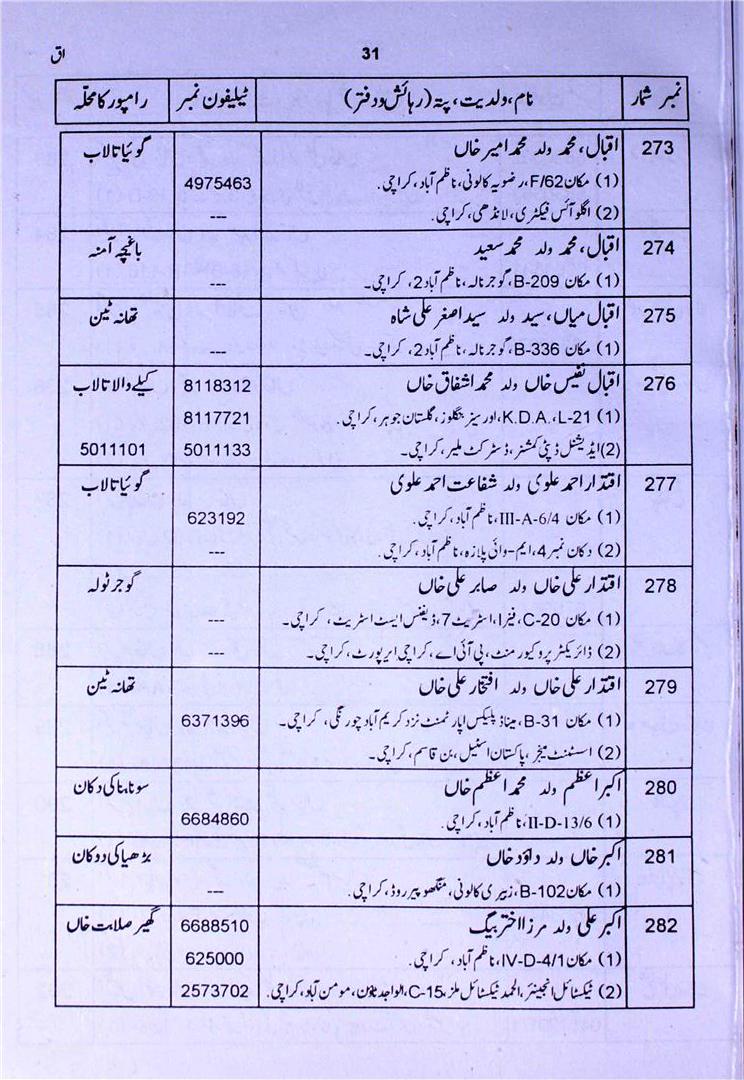 31
اق
نمبر شمار نام، ولدیت، پتہ (رہائش و دفتر) ٹیلیفون نمبر رامپور کا محلّہ
273 اقبال، محمد ولد محمد امیر خاں گوئیا تالاب
(1) مکان F/62، رضویہ کالونی، ناظم آباد، کراچی۔ 4975463
(2) اگلو آئس فیکٹری، لانڈھی، کراچی۔ ---
274 اقبال، محمد ولد محمد سعید باغچہ آمنہ
(1) مکان B-209، گوجر نالہ، ناظم آباد 2، کراچی۔ ---
275 اقبال میاں، سید ولد سید اصغر علی شاہ تھانہ ٹین
(1) مکان B-336، گوجر نالہ، ناظم آباد 2، کراچی۔ ---
276 اقبال نفیس خاں ولد محمد اشفاق خاں 8118312 کیلے والا تالاب
(1) L-21، K.D.A، اورسیز بنگلوز، گلستان جوہر، کراچی۔ 8117721
(2) ایڈیشنل ڈپٹی کمشنر، ڈسٹرکٹ ملیر، کراچی۔ 5011133 5011101
277 اقتدار احمد علوی ولد شفاعت احمد علوی گوئیا تالاب
(1) مکان III-A-6/4، ناظم آباد، کراچی۔ 623192
(2) دکان نمبر 4، ایم-وائی پلازہ، ناظم آباد، کراچی۔ ---
278 اقتدار علی خاں ولد صابر علی خاں گوجر ٹولہ
(1) مکان C-20، فیز I، اسٹریٹ 7، ڈیفنس ایسٹ اسٹریٹ، کراچی۔ ---
(2) ڈائریکٹر پروکیورمنٹ، پی آئی اے، کراچی ایرپورٹ، کراچی۔ ---
279 اقتدار علی خاں ولد افتخار علی خاں تھانہ ٹین
(1) مکان B-31، میناڈپلیکس اپارٹمنٹ نزد کریم آباد چورنگی، کراچی۔ 6371396
(2) اسسٹنٹ منیجر، پاکستان اسٹیل، بن قاسم، کراچی۔
280 اکبر اعظم ولد محمد اعظم خاں سونا بنا کی دکان
(1) II-D-13/6، ناظم آباد، کراچی۔ 6684860
281 اکبر خاں ولد داؤد خاں بڑھیا کی دوکان
(1) مکان B-102، زبیری کالونی، منگھوپیر روڈ، کراچی۔ ---
282 اکبر علی ولد مرزا اختر بیگ 6688510 گھیر صلابت خاں
(1) مکان IV-D-4/1، ناظم آباد، کراچی۔ 625000
(2) ٹیکسٹائل انجینئر، الحمد ٹیکسٹائل ملز، C-15، الواجد ٹاؤن، مومن آباد، کراچی۔ 2573702